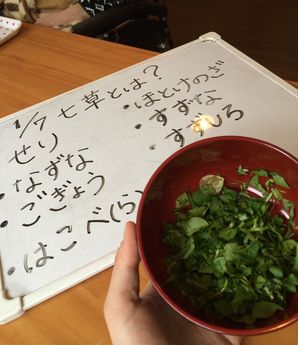 1/7 七草とは?
せり
・なずな
・ごぎょう
・はこべ(ら)
・ほとけのざ
・すずな
・すずしろ